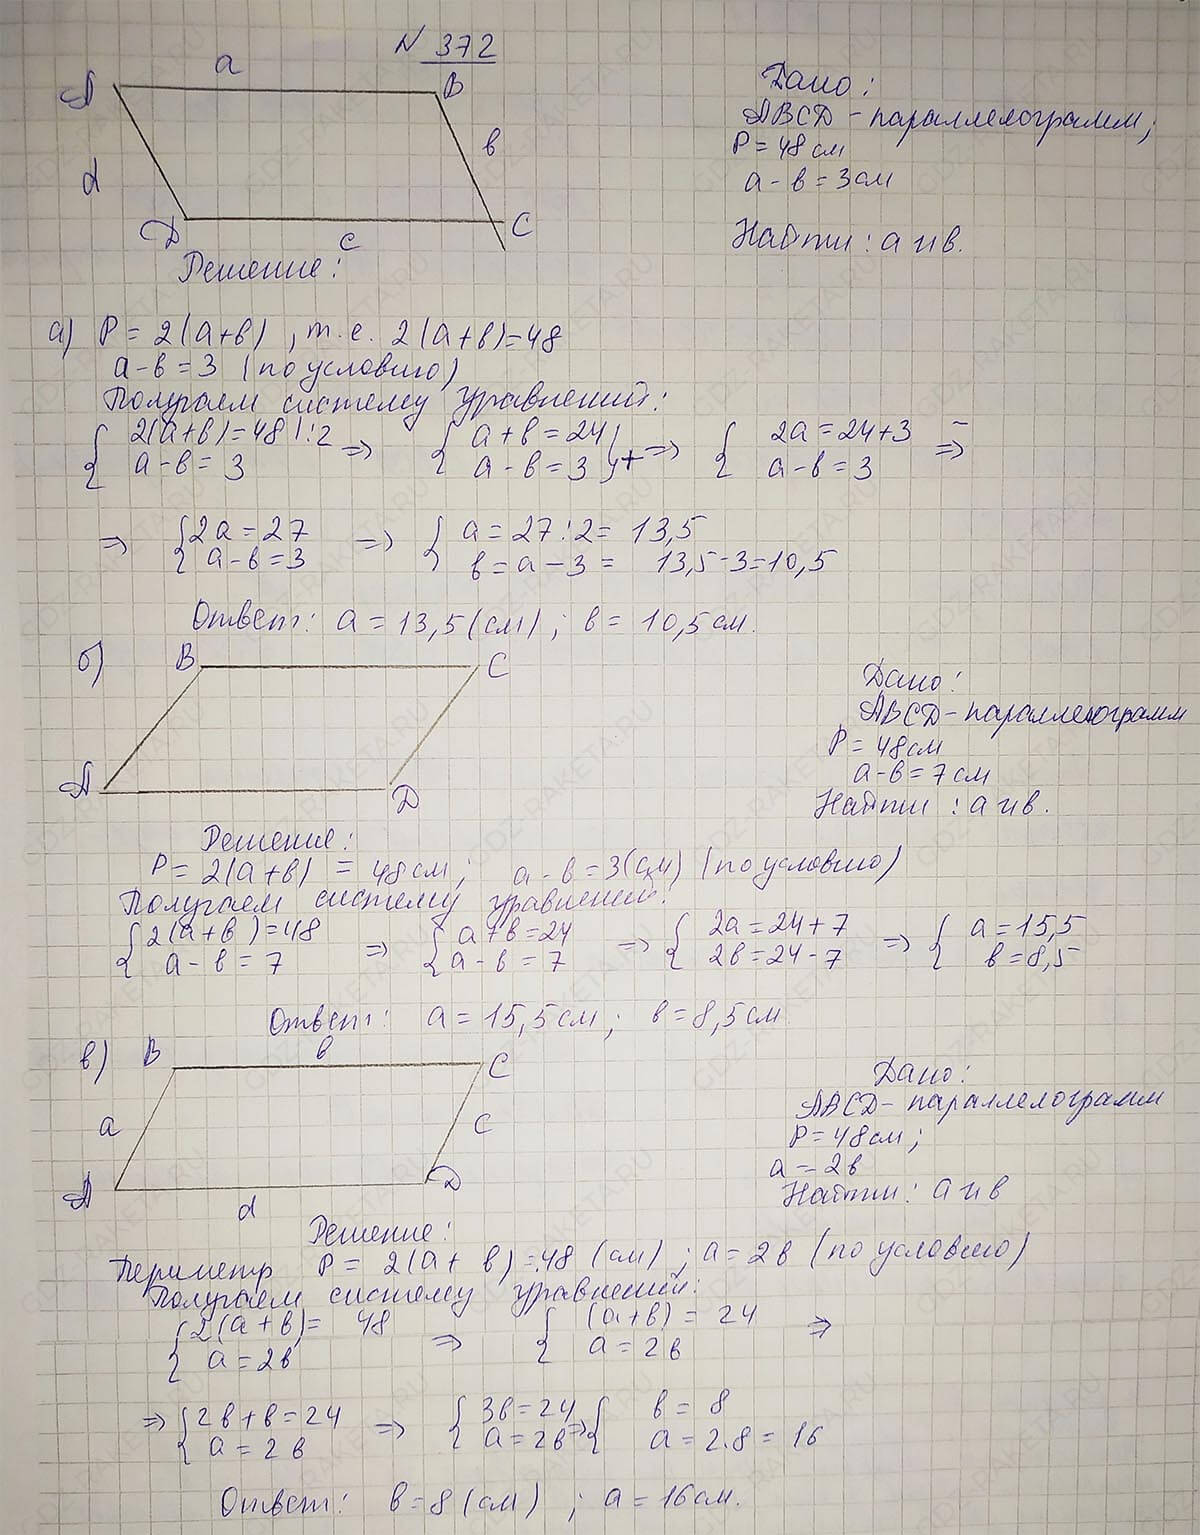 N 372
a
A
B
в
d
D
c
C
Дано:
ABCD - параллелограмм;
P = 48 см
a - в = 3 см
Найти: a и в.
Решение:
а) P = 2(a+в), т.е. 2(a+в)=48
a-в = 3 (по условию)
Получаем систему уравнений:
{ 2(a+в)=48 |:2 => { a+в=24 } + => { 2a=24+3 =>
{ a-в=3 { a-в=3 } { a-в=3
=> { 2a=27 => { a=27:2= 13,5
{ a-в=3 { в=a-3= 13,5-3=10,5
Ответ: a=13,5(см); в= 10,5 см.
б)
B
C
A
D
Дано:
ABCD - параллелограмм
P = 48 см
a-в=7 см
Найти: a и в.
Решение:
P= 2(a+в) = 48 см; a-в=3(см) (по условию)
Получаем систему уравнений:
{ 2(a+в)=48 => { a+в=24 => { 2a=24+7 => { a=15,5
{ a-в=7 { a-в=7 { 2в=24-7 { в=8,5
Ответ: a=15,5 см; в=8,5 см
в)
B
в
C
a
C
A
D
d
Дано:
ABCD - параллелограмм
P=48 см;
a = 2в
Найти: a и в
Решение:
Периметр P= 2(a+в)=48 (см); a=2в (по условию)
Получаем систему уравнений:
{ 2(a+в)= 48 => { (a+в)= 24 =>
{ a=2в { a=2в
=> { 2в+в=24 => { 3в=24 => { в= 8
{ a=2в { a=2в { a=2.8= 16
Ответ: в=8 (см); a=16 см.
GDZ-RAKETA.RU